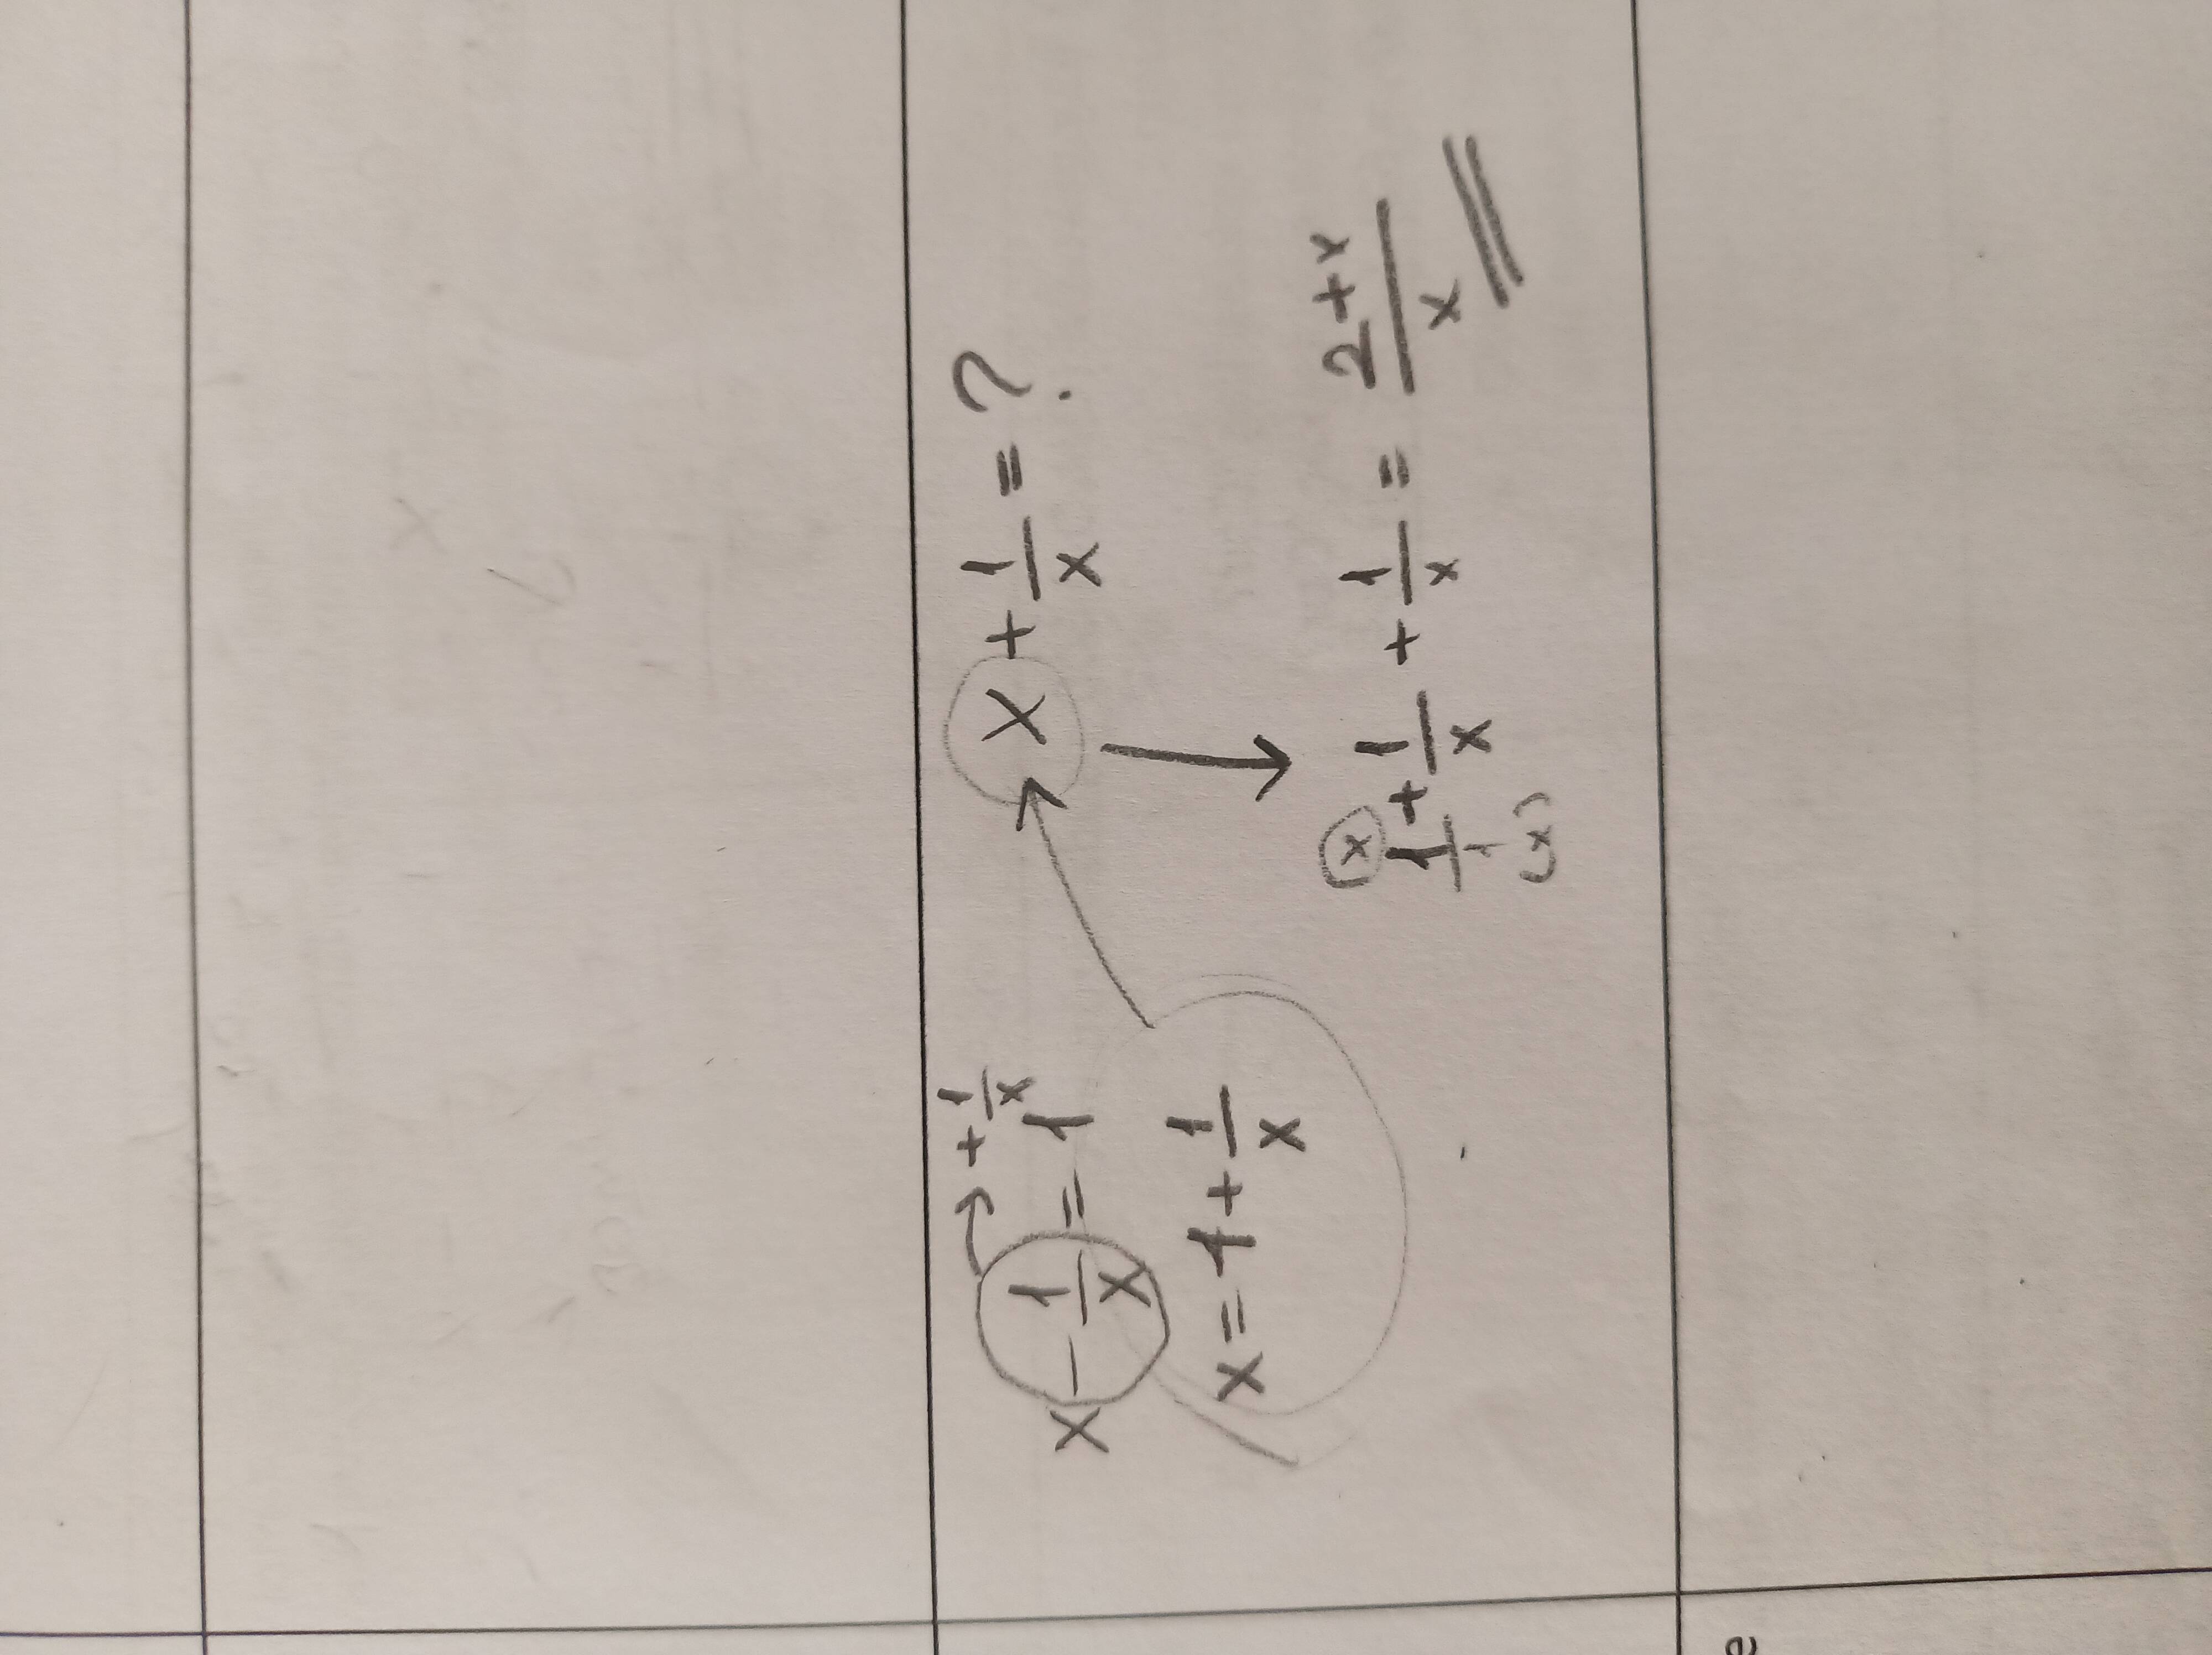 x - 1/x = 1 → + 1/x
x = 1 + 1/x
x + 1/x = ?
1/1 + 1/x + 1/x = 2+x/x
(x) (x)
e